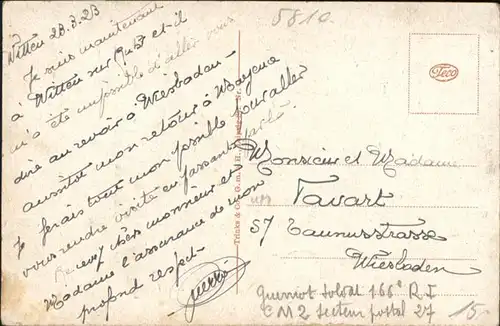 5810
Witten 28.3.23
Je suis maintenant
à Witten sur Ruhr et il
m'a été impossible d'aller vous
dire au revoir à Wiesbaden -
aussitôt mon retour à Mayence
Je ferais tout mon possible pour aller
vous rendre visite en passant par là.
Recevez chers monsieur et
Madame l'assurance de mon
profond respect -
Teco
Monsieur et Madame
Tavart
57 Taunusstrasse
Wiesbaden
Quernot soldat 166e R I
C M 2 secteur postal 27
15.-